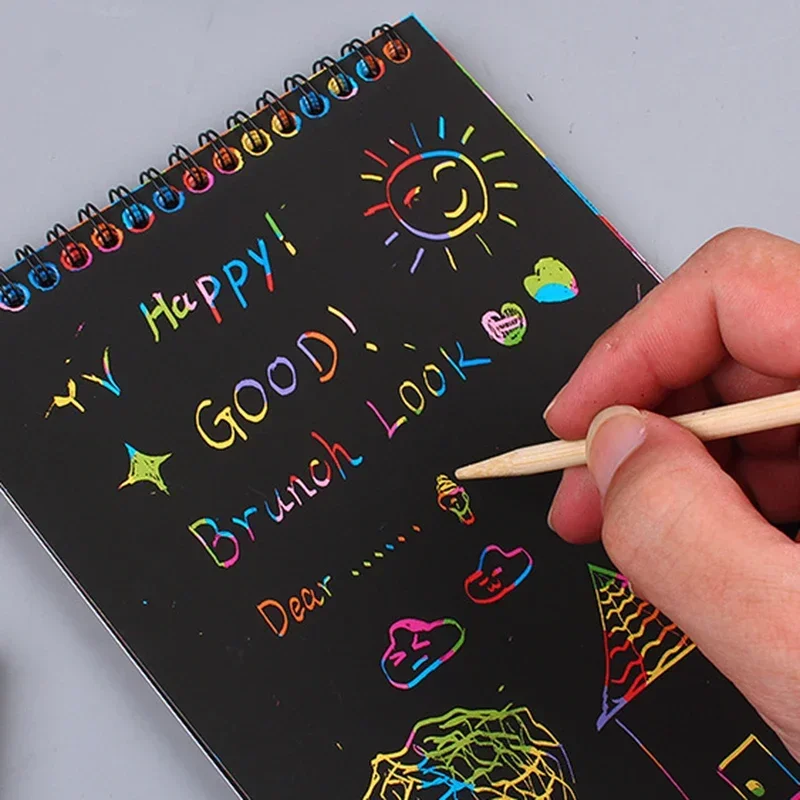 Happy!
YV GOOD!
Brunch Look
Dear ......